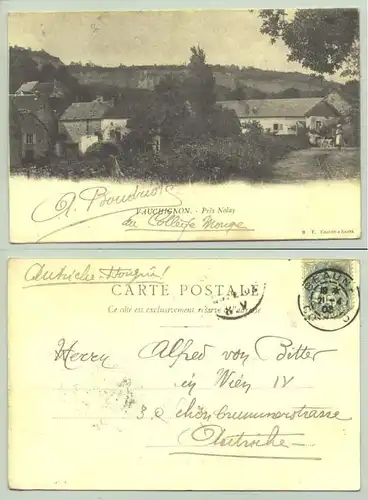 VAUCHIGNON. - Près Nolay
A. Boudriot
du Collège Monge
Autriche-Hongrie!
CARTE POSTALE
Ce côté est exclusivement réservé à l'adresse
BEAUNE
Herrn Alfred von Bitter
in Wien IV
3 Schönbrunnerstrasse
Autriche